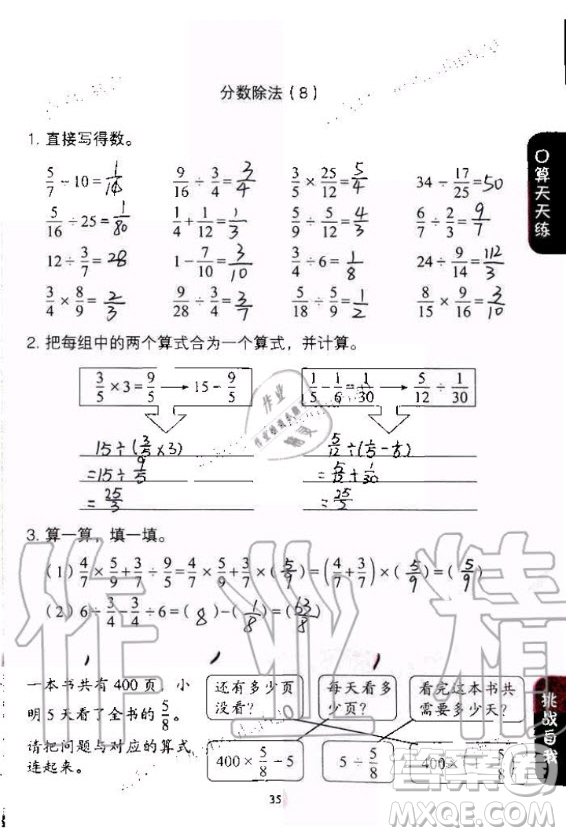 分数除法（8）
1. 直接写得数。
5/7 ÷ 10 = 1/14　9/16 ÷ 3/4 = 3/4　3/5 × 25/12 = 5/4　34 ÷ 17/25 = 50
5/16 ÷ 25 = 1/80　1/4 + 1/12 = 1/3　5/9 ÷ 5/12 = 4/3　6/7 ÷ 2/3 = 9/7
12 ÷ 3/7 = 28　1 − 7/10 = 3/10　3/4 ÷ 6 = 1/8　24 ÷ 9/14 = 112/3
3/4 × 8/9 = 2/3　9/28 ÷ 3/4 = 3/7　5/18 ÷ 5/9 = 1/2　8/15 × 9/16 = 3/10
2. 把每组中的两个算式合为一个算式，并计算。
3/5 × 3 = 9/5 → 15 − 9/5　1/5 − 1/6 = 1/30 → 5/12 ÷ 1/30
15 ÷ (3/5 × 3)　5/12 ÷ (1/5 − 1/6)
= 15 ÷ 9/5　= 5/12 ÷ 1/30
= 25/3　= 25/2
3. 算一算，填一填。
（1）4/7 × 5/9 + 3/7 ÷ 9/5 = 4/7 × 5/9 + 3/7 × ( 5/9 ) = (4/7 + 3/7) × ( 5/9 ) = ( 5/9 )
（2）6 ÷ 3/4 − 3/4 ÷ 6 = ( 8 ) − ( 1/8 ) = ( 63/8 )
一本书共有 400 页，小
明 5 天看了全书的 5/8。
请把问题与对应的算式
连起来。
还有多少页没看？
每天看多少页？
看完这本书共需要多少天？
400 × 5/8 ÷ 5
5 ÷ 5/8
400 ×
35
算天天练
挑战自我
作业精
答案圈
MXQE.COM